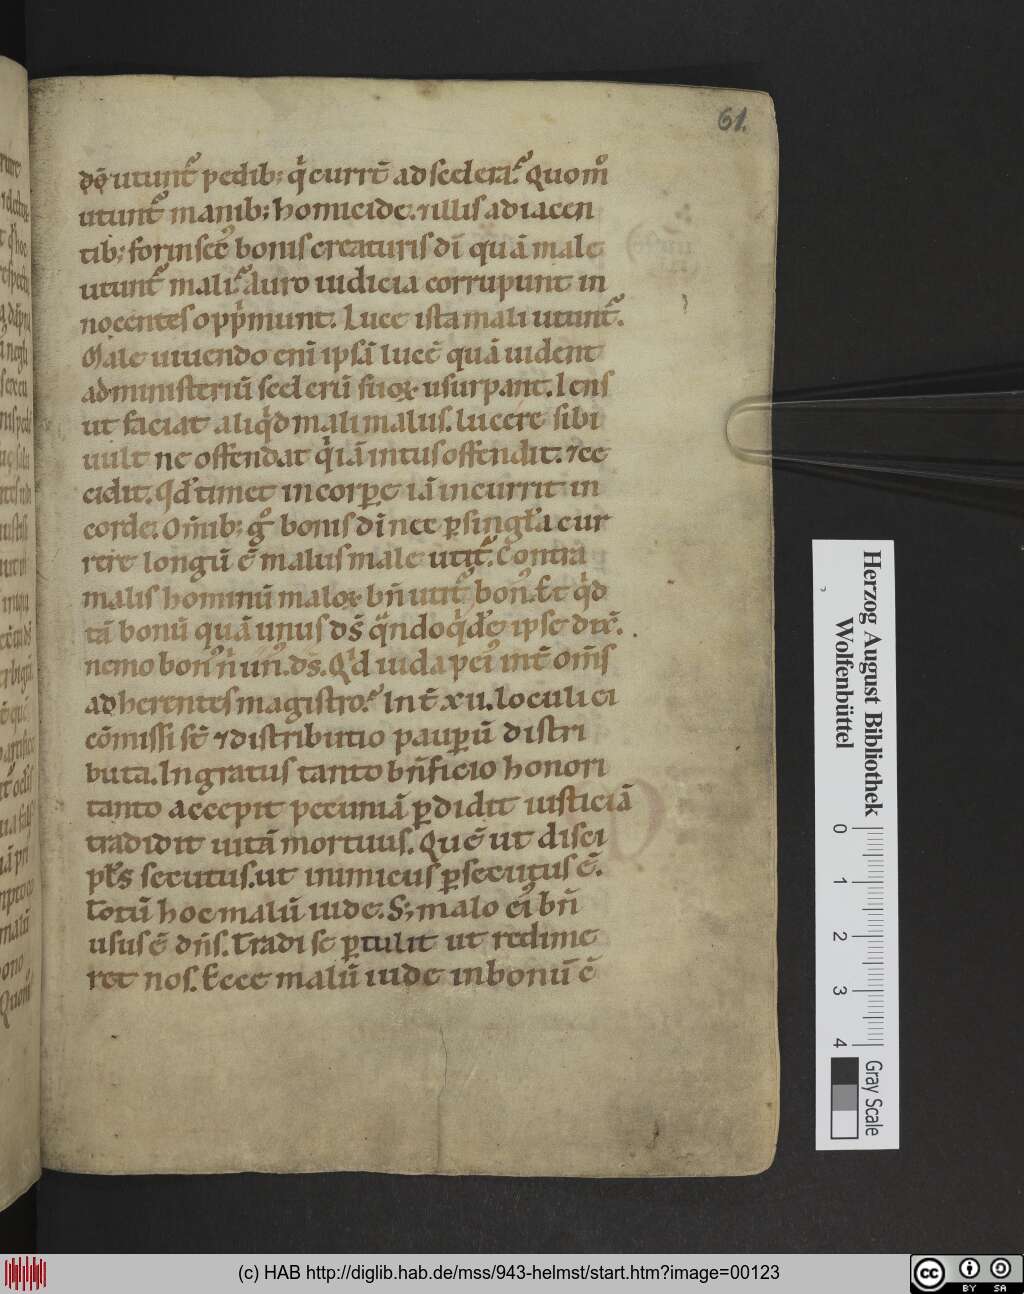 61.
dō utunt᷑ pedib; q̇ currt̄ ad scelera? Quom̊
utunt᷑ manib; homicide. ⁊illis adiacen
tib; forinsec᷒ bonis creaturis dī quā male
utunt᷑ mali? Auro iudicia corrupunt in
nocentes opp̍munt. Luce ista mali utunt᷑.
Male uiuendo enī ipsā lucē quā uident
ad ministeriū scelerū suoꝝ usurpant. Iens
ut faciat aliq̍d mali malus. lucere sibi
uult ne offendat q̍ iā intus offendit. ⁊ce
cidit. qd̓ timet in corꝑe iā incurrit in
corde. Om̄ib; gͦ bonis dī nec ꝑ singl̓a cur
rere longū ē malus male utit᷑. Contra
malis hominū maloꝝ bn̄ utit᷑ bon᷒. Et q̍d
tā bonū quā unus ds̄ qͣndoq̍dē ipse dic̄.
nemo bon᷒ n̍ un᷒. ds̄. Q̍d iuda pei᷒ int̄ om̄s
adherentes magistro? Int̄ xii. loculi ei
cōmissi st̄ ⁊distributio pauꝑū distri
buta. Ingratus tanto bn̄ficio honori
tanto accepit pecuniā ꝑdidit iusticiā
tradidit uitā mortuus. Quē ut disci
pl̓s secutus. ut inimicus ꝑsecutus ē.
Totū hoc malū iude. S; malo ei᷒ bn̄
usus ē dn̄s. Tradi se ꝑtulit ut redime
ret nos. Ecce malū iude in bonū ē
Herzog August Bibliothek
Wolfenbüttel
0 1 2 3 4
Gray Scale
(c) HAB http://diglib.hab.de/mss/943-helmst/start.htm?image=00123
cc BY SA